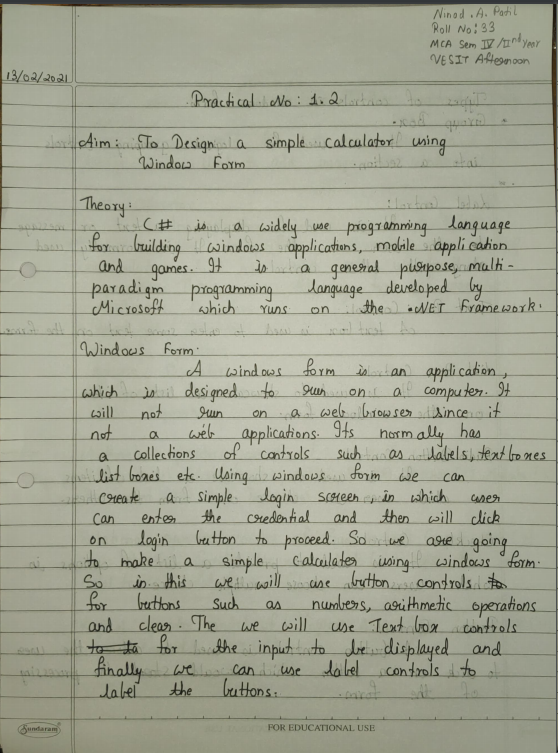 Ninad . A. Patil
Roll No: 33
MCA Sem IV / IInd Year
VESIT Afternoon
13/02/2021
Practical No: 1.2
Aim: To Design a simple calculator using
Window Form
Theory:
C# is a widely use programming language
for building windows applications, mobile application
and games. It is a general purpose, multi-
paradigm programming language developed by
Microsoft which runs on the .NET Framework.
Windows Form.
A windows form is an application,
which is designed to run on a computer. It
will not run on a web browser since it
not a web applications. Its normally has
a collections of controls such as labels, text boxes
list boxes etc. Using windows form we can
create a simple login screen, in which user
can enter the credential and then will click
on login button to proceed. So we are going
to make a simple calculater using windows form.
So in this we will use button controls to
for buttons such as numbers, arithmetic operations
and clear. The we will use Text box controls
to ta for the input to be displayed and
finally we can use label controls to
label the buttons.
Sundaram
FOR EDUCATIONAL USE